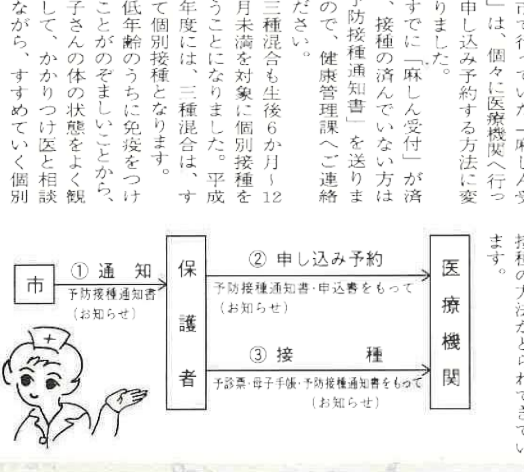 市で行っていた「麻しん受
」は、個々に医療機関へ行っ
申し込み予約する方法に変
りました。
すでに「麻しん受付」が済
、接種の済んでいない方は
予防接種通知書」を送りま
ので、健康管理課へご連絡
ださい。
三種混合も生後6か月〜12
月未満を対象に個別接種を
うことになりました。平成
年度には、三種混合は、す
て個別接種となります。
低年齢のうちに免疫をつけ
ことがのぞましいことから、
子さんの体の状態をよく観
して、かかりつけ医と相談
ながら、すすめていく個別
接種の方法がとられてきてい
ます。
市
① 通 知
予防接種通知書
(お知らせ)
保護者
② 申し込み予約
予防接種通知書・申込書をもって
(お知らせ)
③ 接 種
予診票・母子手帳・予防接種通知書をもって
(お知らせ)
医療機関